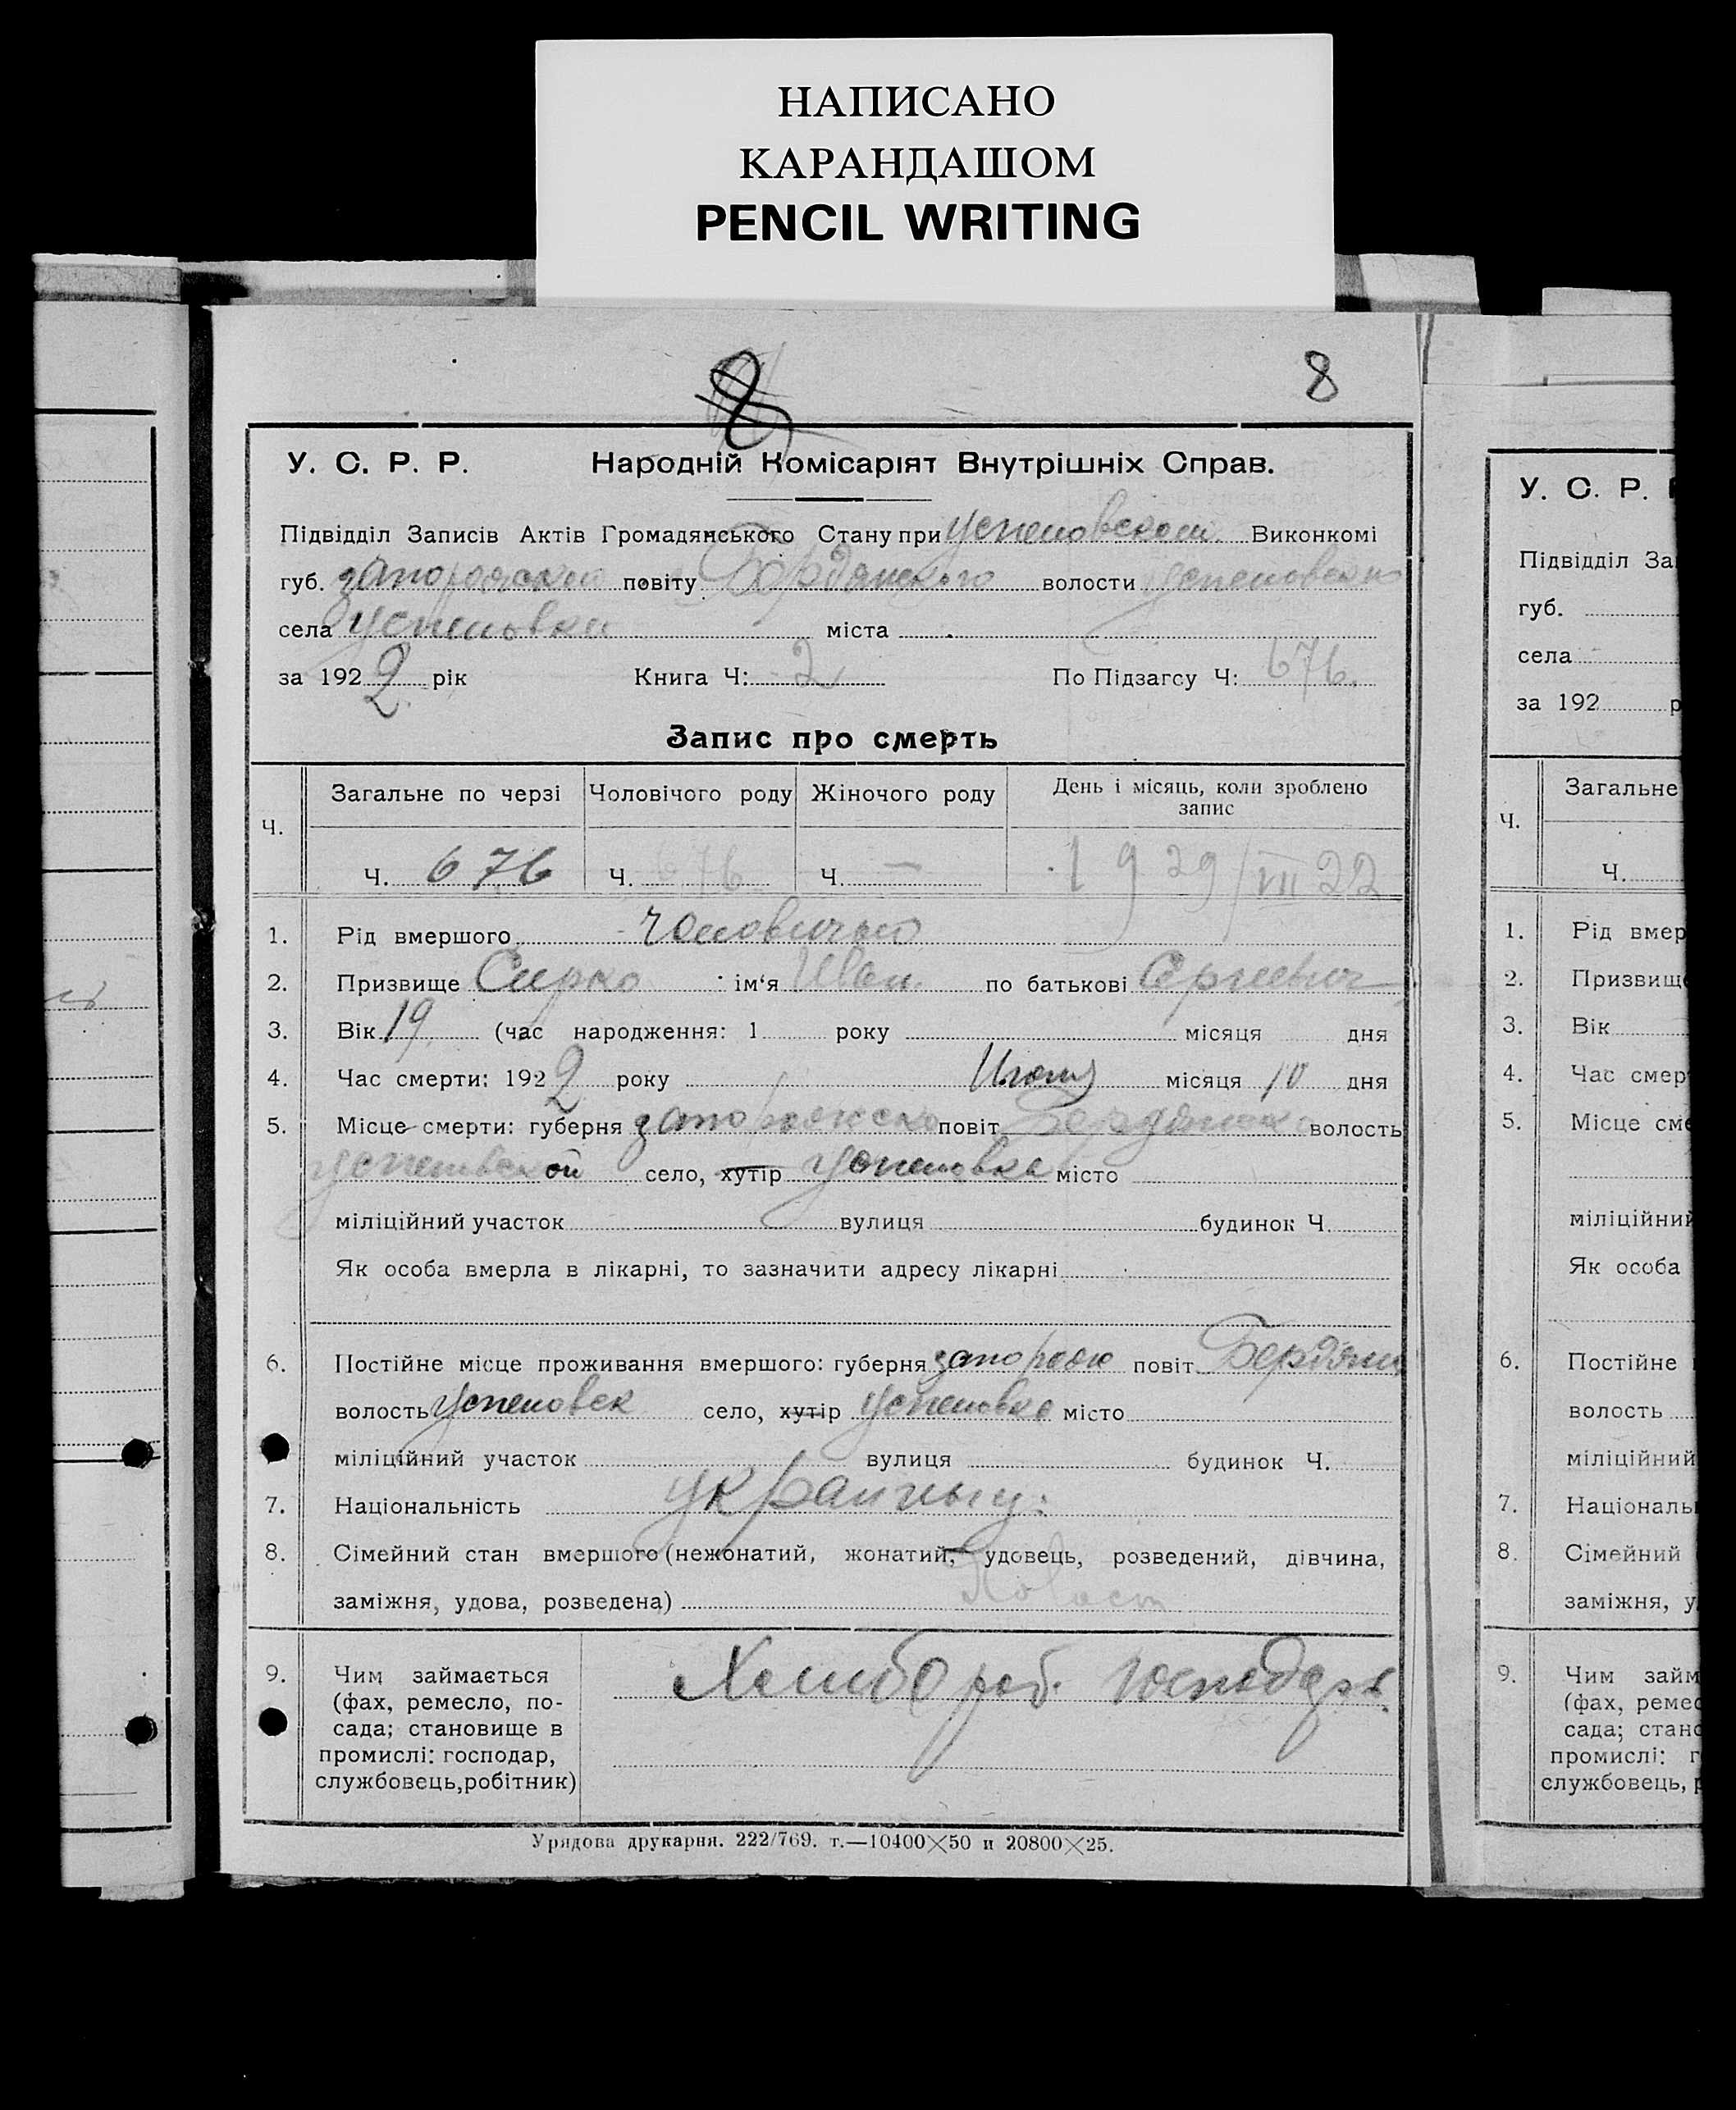 НАПИСАНО
КАРАНДАШОМ
PENCIL WRITING
8 8
У. С. Р. Р. Народній Комісаріят Внутрішніх Справ.
Підвідділ Записів Актів Громадянського Стану при Успеновском Виконкомі
губ. Запорожской повіту Бердянского волости Успеновской
села Успеновки міста
за 1922 рік Книга Ч: 2 По Підзагсу Ч: 676.
Запис про смерть
Ч. Загальне по черзі Чоловічого роду Жіночого роду День і місяць, коли зроблено
запис
Ч. 676 Ч. 676 Ч. — 19 29/VIII 22
1. Рід вмершого
2. Призвище Сирко ім‘я Иван по батькові Сергиевич
3. Вік 19 (час народження: 1 року місяця дня
4. Час смерти: 1922 року місяця 10 дня
5. Місце смерти: губерня Запорожско повіт волость
село, хутір Успеновка місто
міліційний участок вулиця будинок Ч.
Як особа вмерла в лікарні, то зазначити адресу лікарні
6. Постійне місце проживання вмершого: губерня Запорож повіт Бердянск
волость Успеновск село, хутір Успеновка місто
міліційний участок вулиця будинок Ч.
7. Національність
8. Сімейний стан вмершого (нежонатий, жонатий, удовець, розведений, дівчина,
заміжня, удова, розведена) Холост
9. Чим займається
(фах, ремесло, по-
сада; становище в
промислі: господар,
службовець, робітник)
Хлибороб. господарь
Урядова друкарня. 222/769. т.—10400×50 и 20800×25.
У. С. Р.
Підвідділ За
губ.
села
за 192
Загальне
Ч.
Ч.
1. Рід вмер
2. Призвищ
3. Вік
4. Час смер
5. Місце сме
міліційний
Як особа
6. Постійне
волость
міліційний
7. Націонал
8. Сімейний
заміжня, у
9. Чим займ
(фах, ремес
сада; стано
промислі: г
службовець,